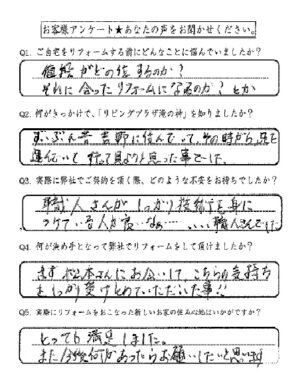 お客様アンケート★あなたの声をお聞かせください。
Q1. ご自宅をリフォームする前にどんなことに悩んでいましたか?
値段がどの位するのか?
それに合ったリフォームになるのか?とか
Q2. 何がきっかけで、「リビングプラザ滝の神」を知りましたか?
ずいぶん昔 吉野に住んでって、その時から、足を
運んで行って見ようと思った事でした。
Q3. 実際に弊社でご契約を頂く際、どのような不安をお持ちでしたか?
職人さんがしっかり技術を身に
つけている人が良いなぁ…
Q4. 何が決め手となって弊社でリフォームをして頂けましたか?
まず松本さんにお会いして、こちらの気持ち
をしっかり受けとめていただいた事!!
Q5. 実際にリフォームをおこなった新しいお家の住み心地はいかがですか?
とっても満足しました。
また今後何かあったらお願いしたいと思います